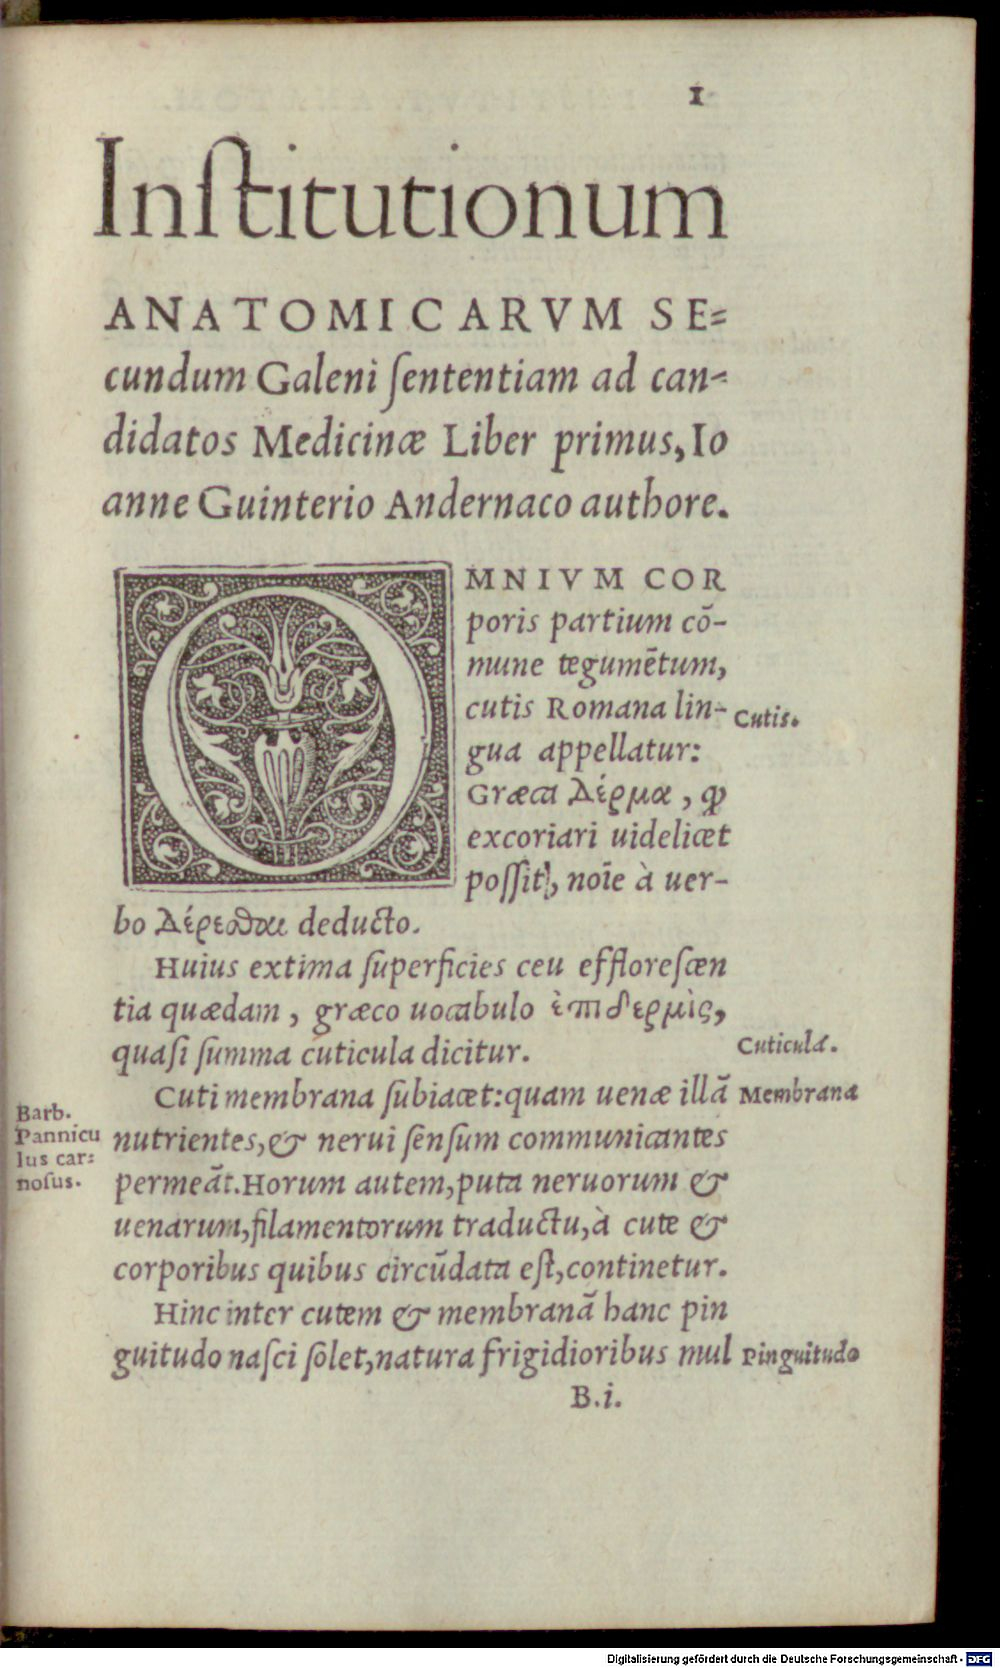 1
Inſtitutionum
ANATOMICARVM SE=
cundum Galeni ſententiam ad can-
didatos Medicinæ Liber primus, Io
anne Guinterio Andernaco authore.
OMNIVM COR
poris partium cō-
mune tegumētum,
cutis Romana lin-
Cutis.
gua appellatur:
Græca Δέρμα, ꝙ
excoriari uidelicet
poſſit, noīe à uer-
bo Δέρεσθαι deducto.
Huius extima ſuperficies ceu effloreſcen
tia quædam, græco uocabulo ἐπιδερμὶς,
quaſi ſumma cuticula dicitur.
Cuticula.
Cuti membrana ſubiacet: quam uenæ illā
Membrana
Barb.
Pannicu
lus car=
noſus.
nutrientes, & nerui ſenſum communicantes
permeāt. Horum autem, puta neruorum &
uenarum, filamentorum traductu, à cute &
corporibus quibus circūdata eſt, continetur.
Hinc inter cutem & membranā hanc pin
guitudo naſci ſolet, natura frigidioribus mul
Pinguitudo
B.i.
Digitalisierung gefördert durch die Deutsche Forschungsgemeinschaft - DFG